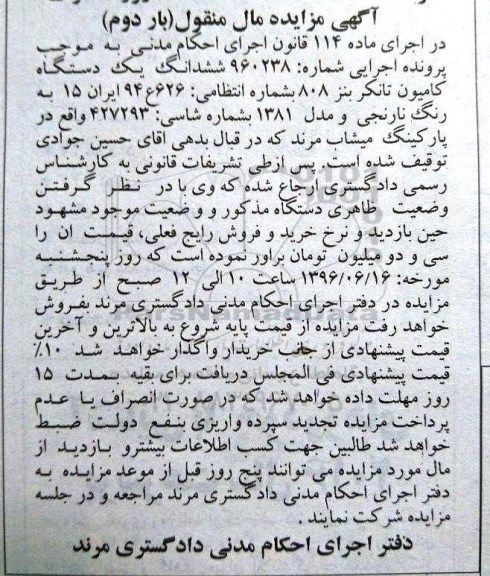 آگهی مزایده مال منقول(بار دوم)
در اجرای ماده ۱۱۴ قانون اجرای احکام مدنی به موجب
پرونده اجرایی شماره: ۹۶۰۲۳۸ ششدانگ یک دستگاه
کامیون تانکر بنز ۸۰۸ بشماره انتظامی: ۶۲۶ع۹۴ ایران ۱۵ به
رنگ نارنجی و مدل ۱۳۸۱ بشماره شاسی: ۴۲۷۲۹۳ واقع در
پارکینگ میشاب مرند که در قبال بدهی اقای حسین جوادی
توقیف شده است. پس ازطی تشریفات قانونی به کارشناس
رسمی دادگستری ارجاع شده که وی با در نظر گرفتن
وضعیت ظاهری دستگاه مذکور و و ضعیت موجود مشهود
حین بازدید و نرخ خرید و فروش رایج فعلی، قیمت ان را
سی و دو میلیون تومان براور نموده است که روز پنجشنبه
مورخه: ۱۳۹۶/۰۶/۱۶ ساعت ۱۰ الی ۱۲ صبح از طریق
مزایده در دفتر اجرای احکام مدنی دادگستری مرند بفروش
خواهد رفت مزایده از قیمت پایه شروع به بالاترین و آخرین
قیمت پیشنهادی از جانب خریدار واگذار خواهد شد ۱۰٪
قیمت پیشنهادی فی المجلس دریافت برای بقیه بمدت ۱۵
روز مهلت داده خواهد شد که در صورت انصراف یا عدم
پرداخت مزایده تجدید سپرده واریزی بنفع دولت ضبط
خواهد شد طالبین جهت کسب اطلاعات بیشترو بازدید از
مال مورد مزایده می توانند پنج روز قبل از موعد مزایده به
دفتر اجرای احکام مدنی دادگستری مرند مراجعه و در جلسه
مزایده شرکت نمایند .
دفتر اجرای احکام مدنی دادگستری مرند